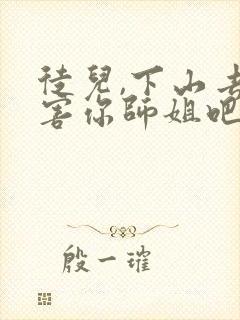 徒兒,下山去
害你師姐吧
殷一璀